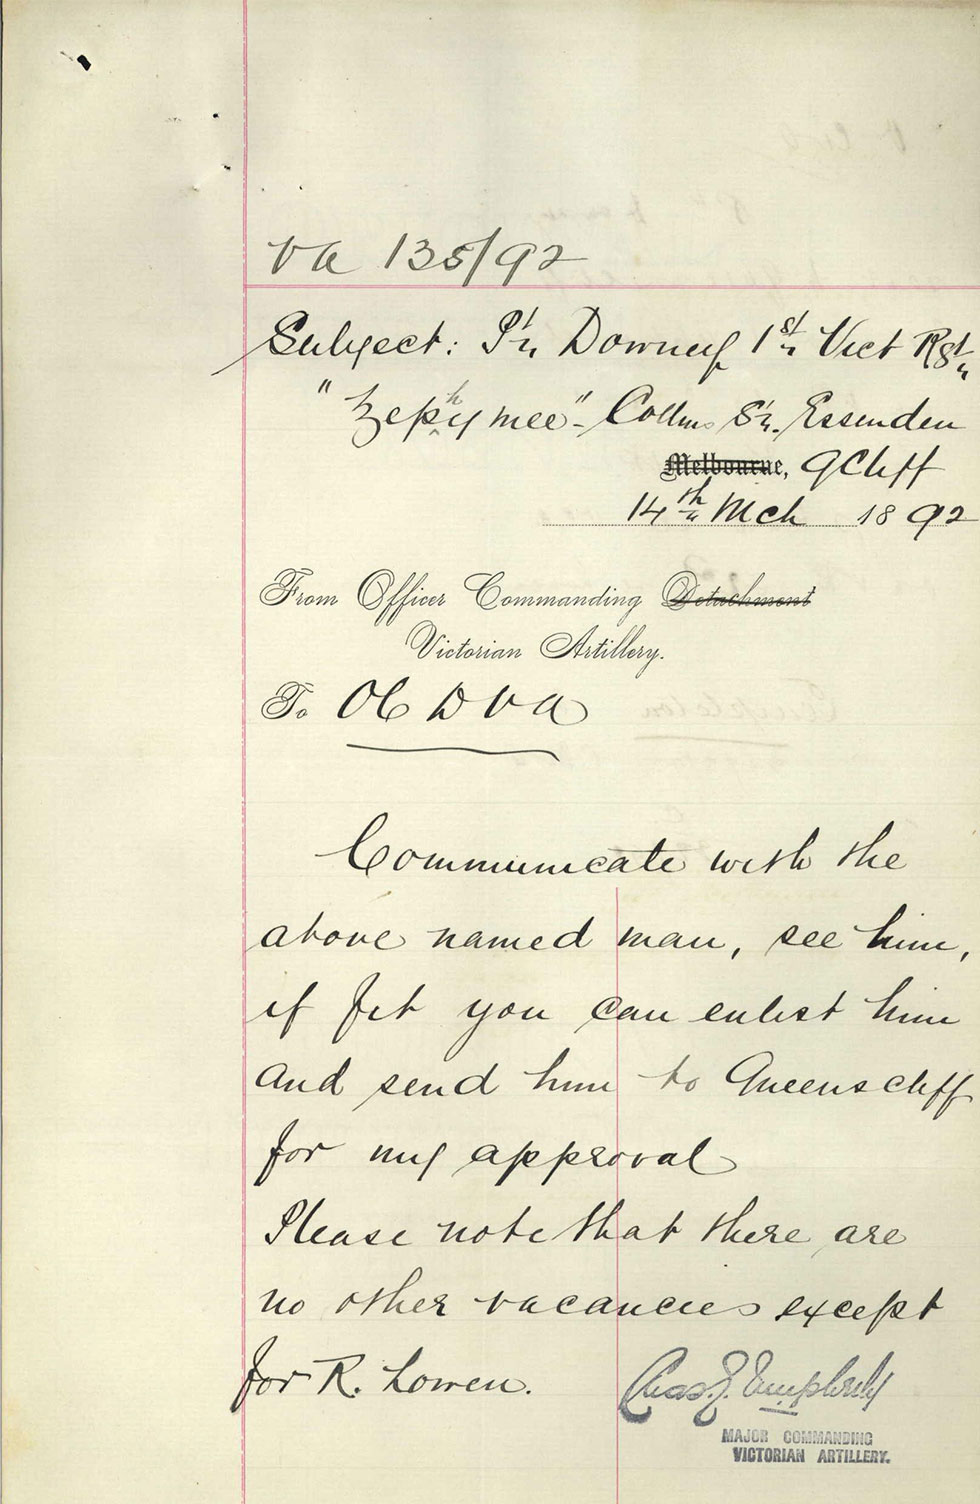 VA 135/92
Subject: Pt. Downey 1st Vict Rgt.
"Zephymee" - Collins St. Essendon
Melbourne, QCliff
14th Mch 1892
From Officer Commanding Detachment
Victorian Artillery.
To OC D V A
Communicate with the
above named man, see him,
if fit you can enlist him
and send him to Queenscliff
for my approval
Please note that there are
no other vacancies except
for R. Lowen.
Chas. J.
MAJOR COMMANDING
VICTORIAN ARTILLERY.